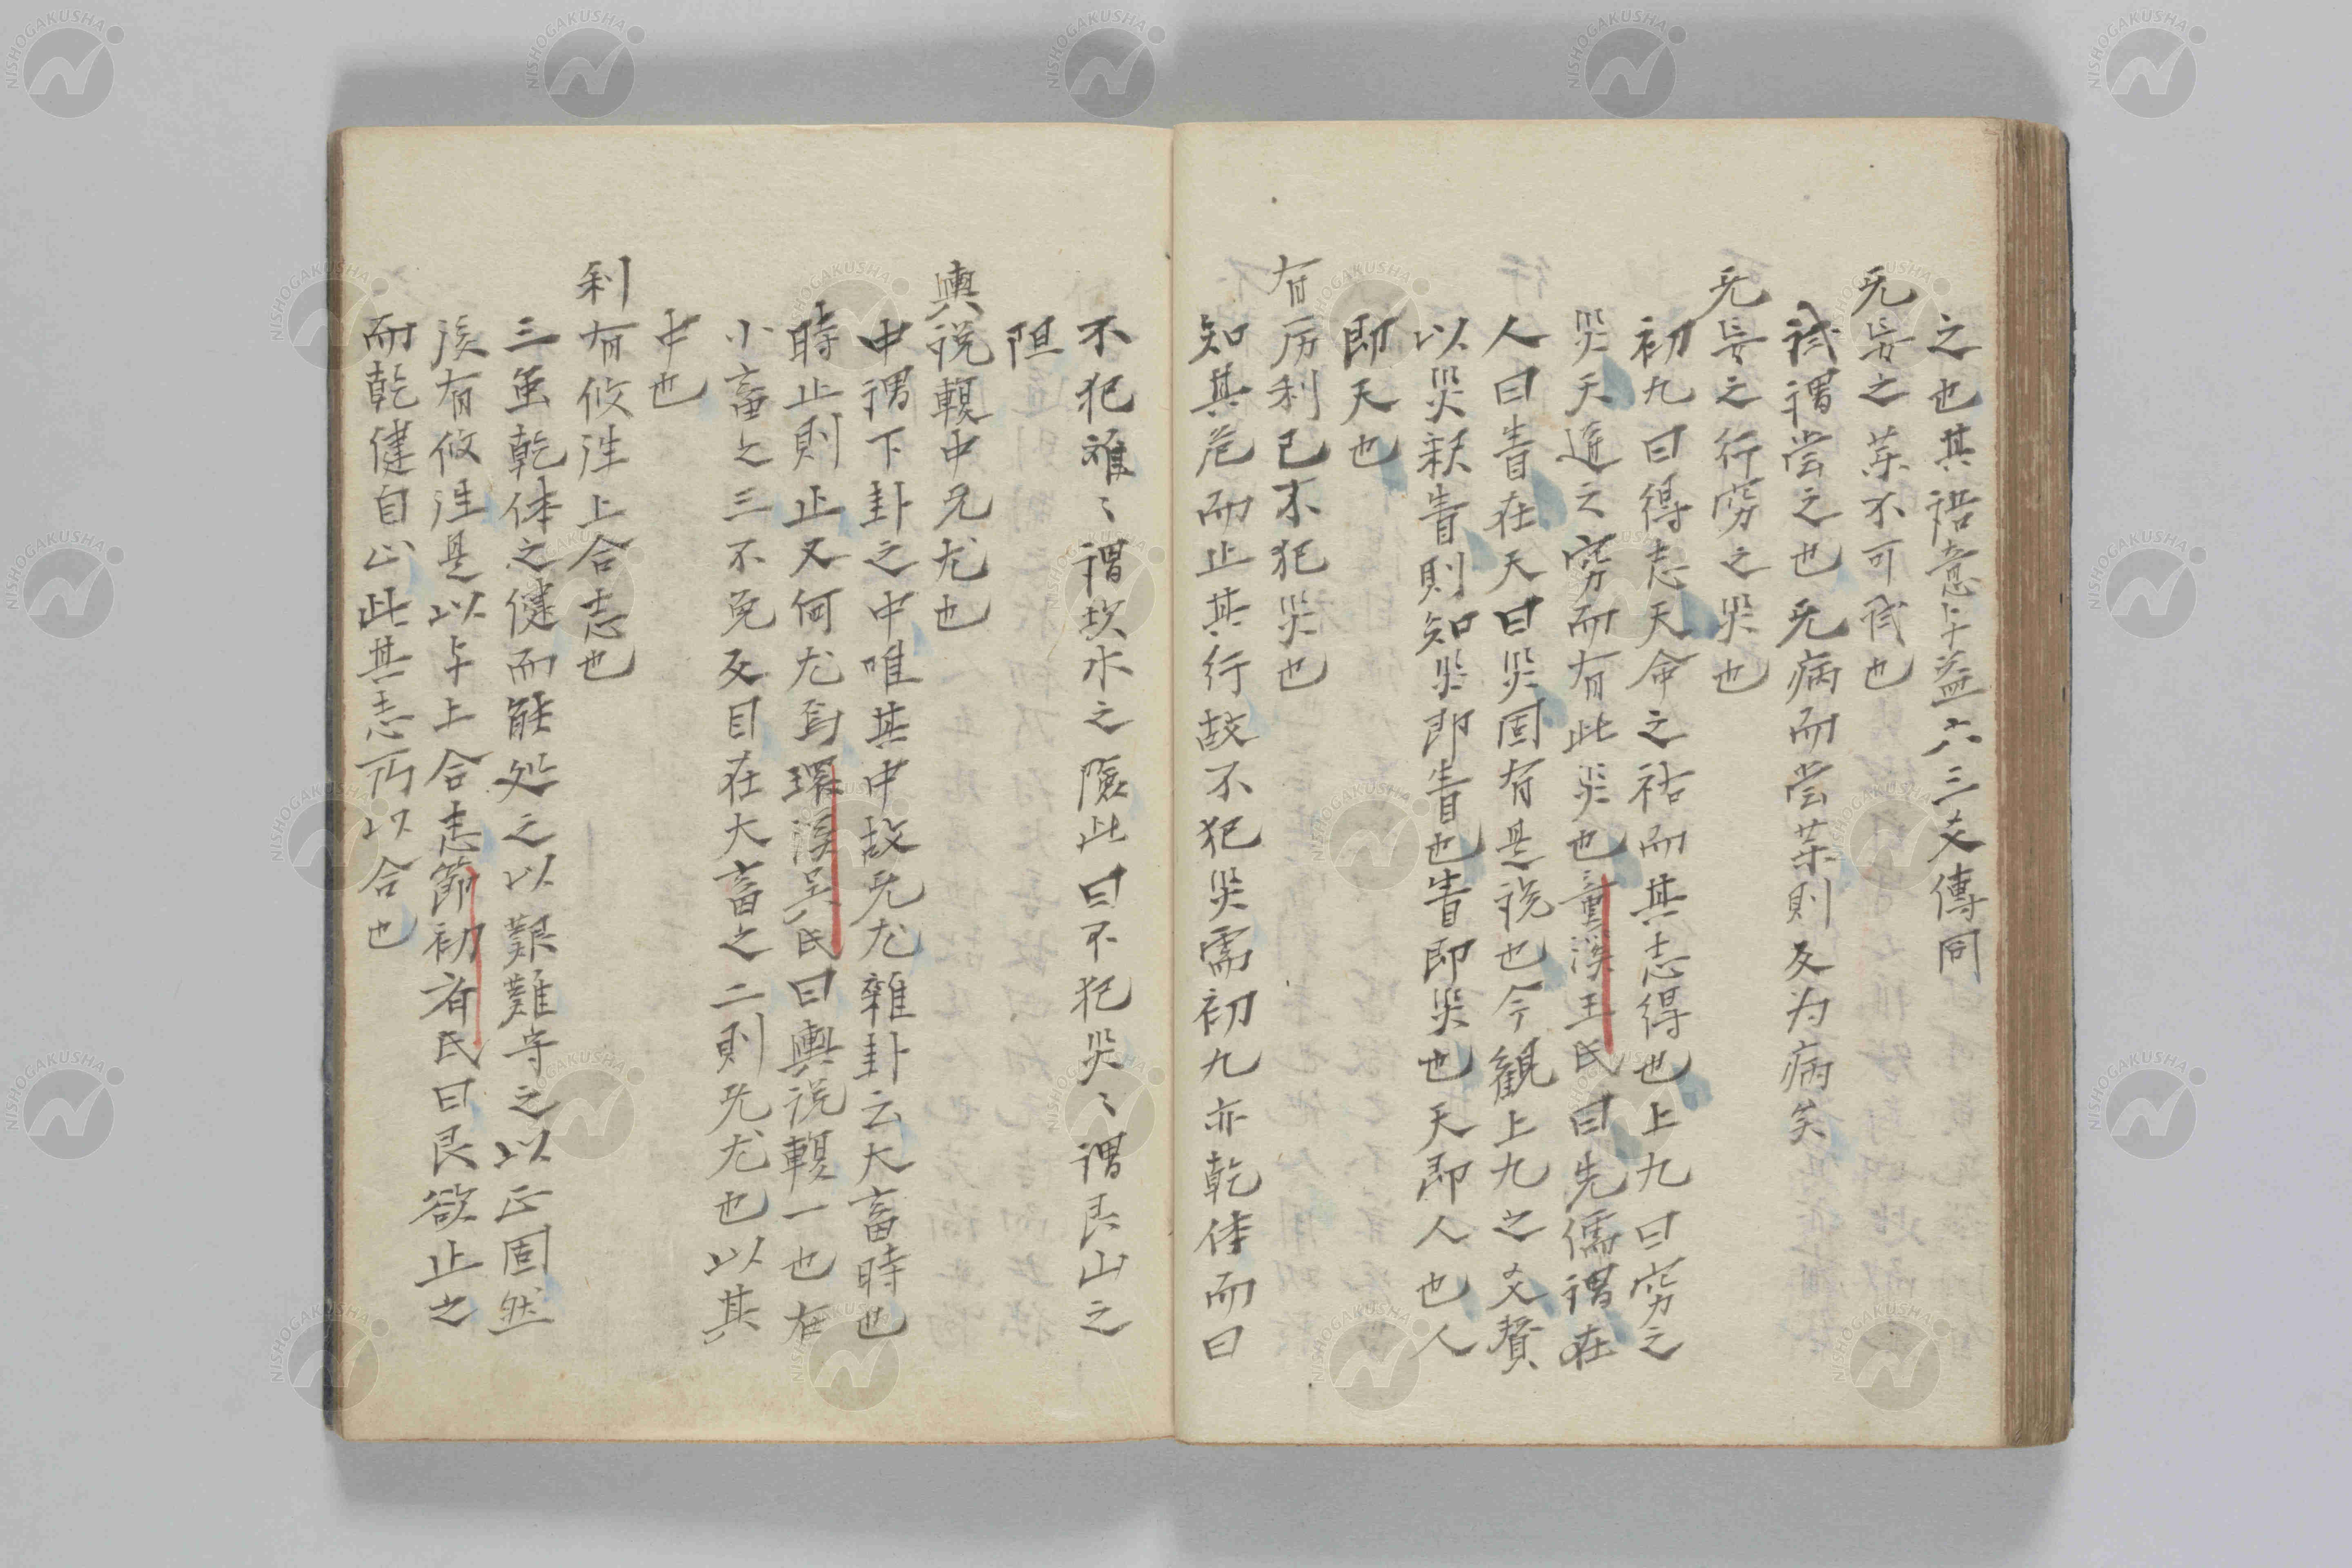 之也其語意与益六三爻傳同
无妄之藥不可試也
試謂嘗之也无病而嘗藥則反为病矣
无妄之行窮之災也
初九曰得志天命之祐而其志得也上九曰窮之
災天運之窮而有此災也童溪王氏曰先儒謂在
人曰眚在天曰災固有是說也今觀上九之爻贊
以災釈眚則知災即眚也眚即災也天即人也人
即天也
有厉利已不犯災也
知其危而止其行故不犯災需初九亦乾体而曰
不犯難〻謂坎水之險此曰不犯災〻謂艮山之
阻
輿説輹中无尤也
中謂下卦之中唯其中故无尤雜卦云大畜時也
時止則止又何尤焉環溪吴氏曰輿説輹一也在
小畜之三不免反目在大畜之二則无尤也以其
中也
利有攸往上合志也
三虽乾体之健而能処之以艱難守之以正固然
後有攸往是以与上合志節初齊氏曰艮欲止之
而乾健自止此其志所以合也
NISHOGAKUSHA